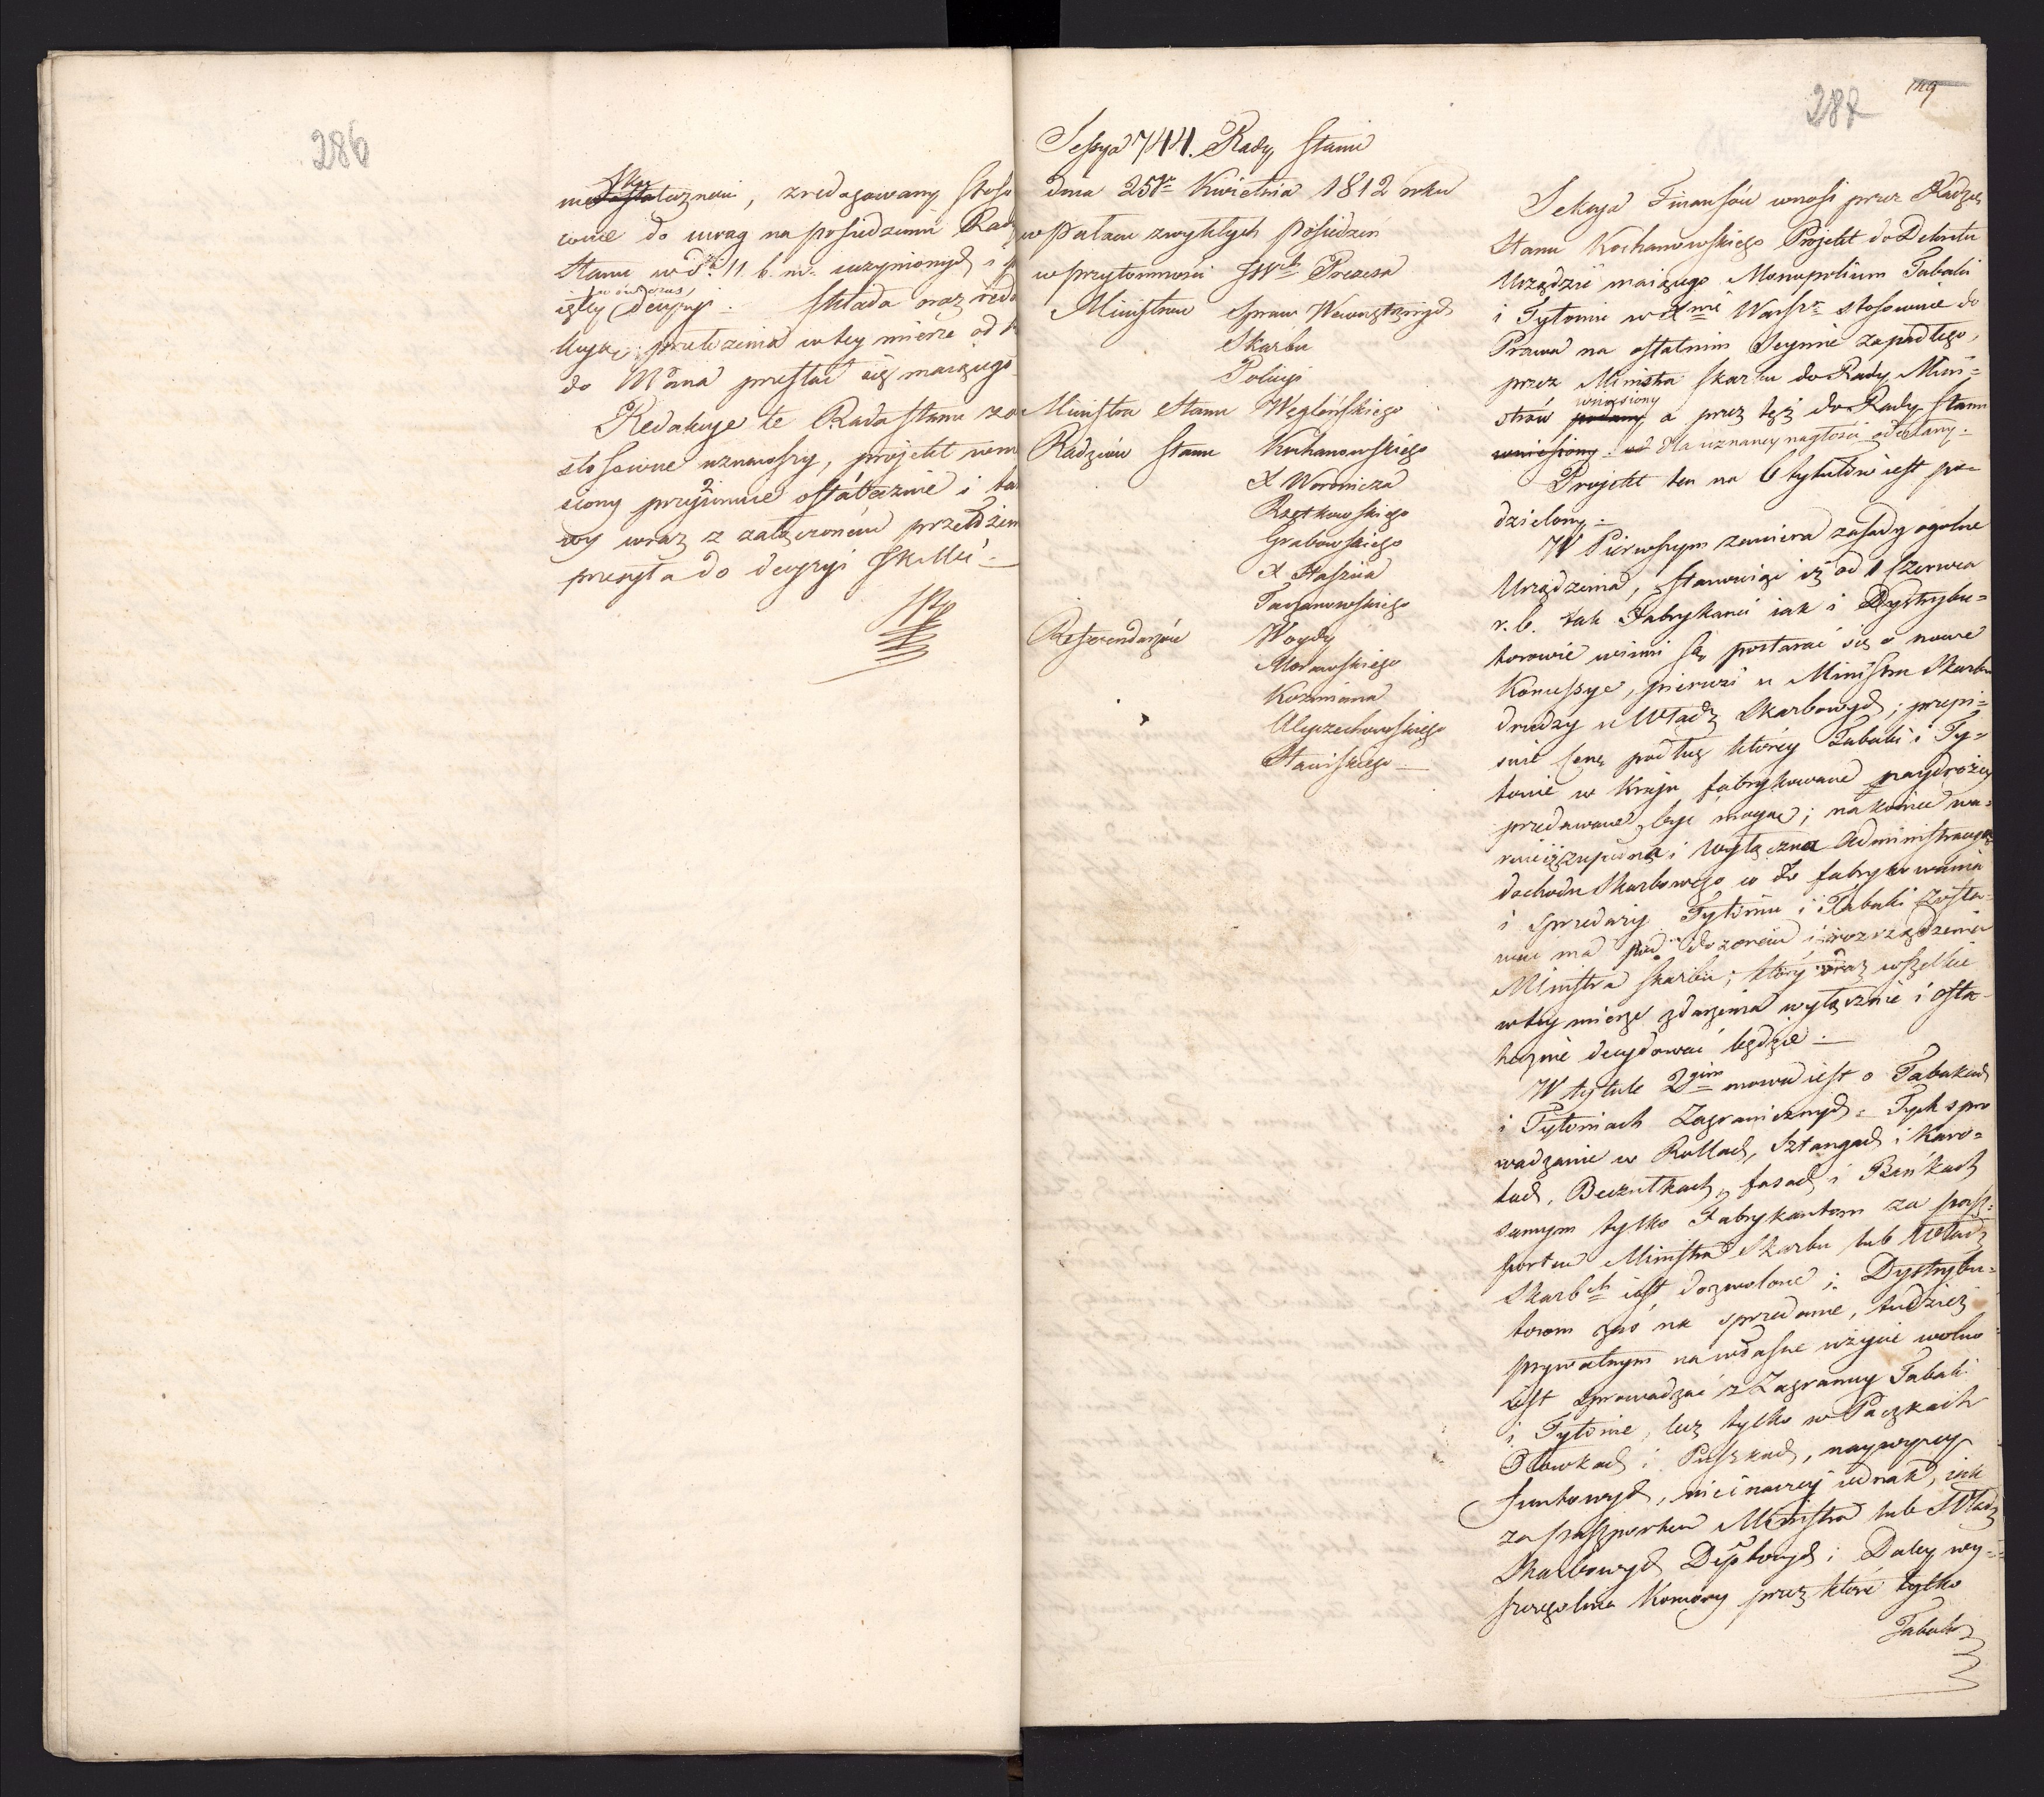 286
zredagowany stoso
wnie do uwag na posiedzeniu Rady
Stanu w d. 11. b. m. uczynionych i
wówczas
decyzyi. Składa oraz reda
przełożenia w tey mierze od
do Mana przesłać się maiącego
Redakcye te Rada Stanu za
stosowne uznawszy, projekt wnie
siony przyimuie ostatecznie i ta
wraz z załączonem przełożeniem
przesyła do decyzyi JKMci
287
149
Sessya 744. Rady Stanu
dnia 25go Kwietnia 1812 roku
w Pałacu zwykłych Posiedzeń
w przytomności JWch Prezesa
Ministrów Spraw Wewnętrznych
Skarbu
Policyi
Ministra Stanu Węgleńskiego
Radzców Stanu Kochanowskiego
X Woronicza
Rzętkowskiego
Grabowskiego
X Staszica
Tarzanowskiego
Referendarzów Woydy
Morawskiego
Kozmiana
Stawiskiego
Sekcya Finansów wnosi przez Radzcę
Stanu Kochanowskiego Projekt do Dekretu
Urządzić maiącego Monopolium Tabaki
i Tytoniu w Xtwie Warskm stosownie do
Prawa na ostatnim Seymie zapadłego,
przez Ministra Skarbu do Rady Mini=
wnoszony
strów podany a przez tęż do Rady Stanu
wniesiony dla uznaney nagłości odesłany.
Projekt ten na 6 tytułów iest po=
dzielony.
W Pierwszym zawiera zasady ogólne
Urządzenia, stanowiąc iż od 1 Czerwca
r. b. tak Fabrykanci iak i Dystrybu=
torowie winni są postarać się o nowe
Konsessye, pierwsi u Ministra Skarbu
drudzy u Władz Skarbowych; przepi=
suie cenę podług którey Tabaki i Ty=
tonie w Kraju fabrykowane naydrożey
przedawane być mogą; nakoniec wa=
ruie iż zupełna i wyłączna Administracya
dochodu Skarbowego co do fabrykowania
i sprzedaży Tytoniu i Tabaki zosta=
wać ma pod dozorem i rozrządzeniem
Ministra Skarbu, który oraz wszelkie
w tey mierze zdarzenia wyłącznie i osta=
tecznie decydować będzie.
W tytule 2gim mowa iest o Tabakach
i Tytoniach Zagranicznych. Tych spro
wadzanie w Rollach, Sztangach i Karo=
tach, Beczułkach, fasach i Bańkach
samym tylko Fabrykantom za pasz=
portem Ministra Skarbu lub Władz
Skarbch iest dozwolone; Dystrybu=
torom zaś na sprzedanie, tudzież
prywatnym na własne użycie wolno
iest sprowadzać z Zagranicy Tabaki
i Tytonie, lecz tylko w Paczkach
Ołowkach i Puszkach, naywięcey
funtowych, nie inaczey iednak, iak
za paszportem Ministra lub Władz
Skarbowych Depttowych; Daley wy=
szczególnia Komory przez które tylko
Tabaka